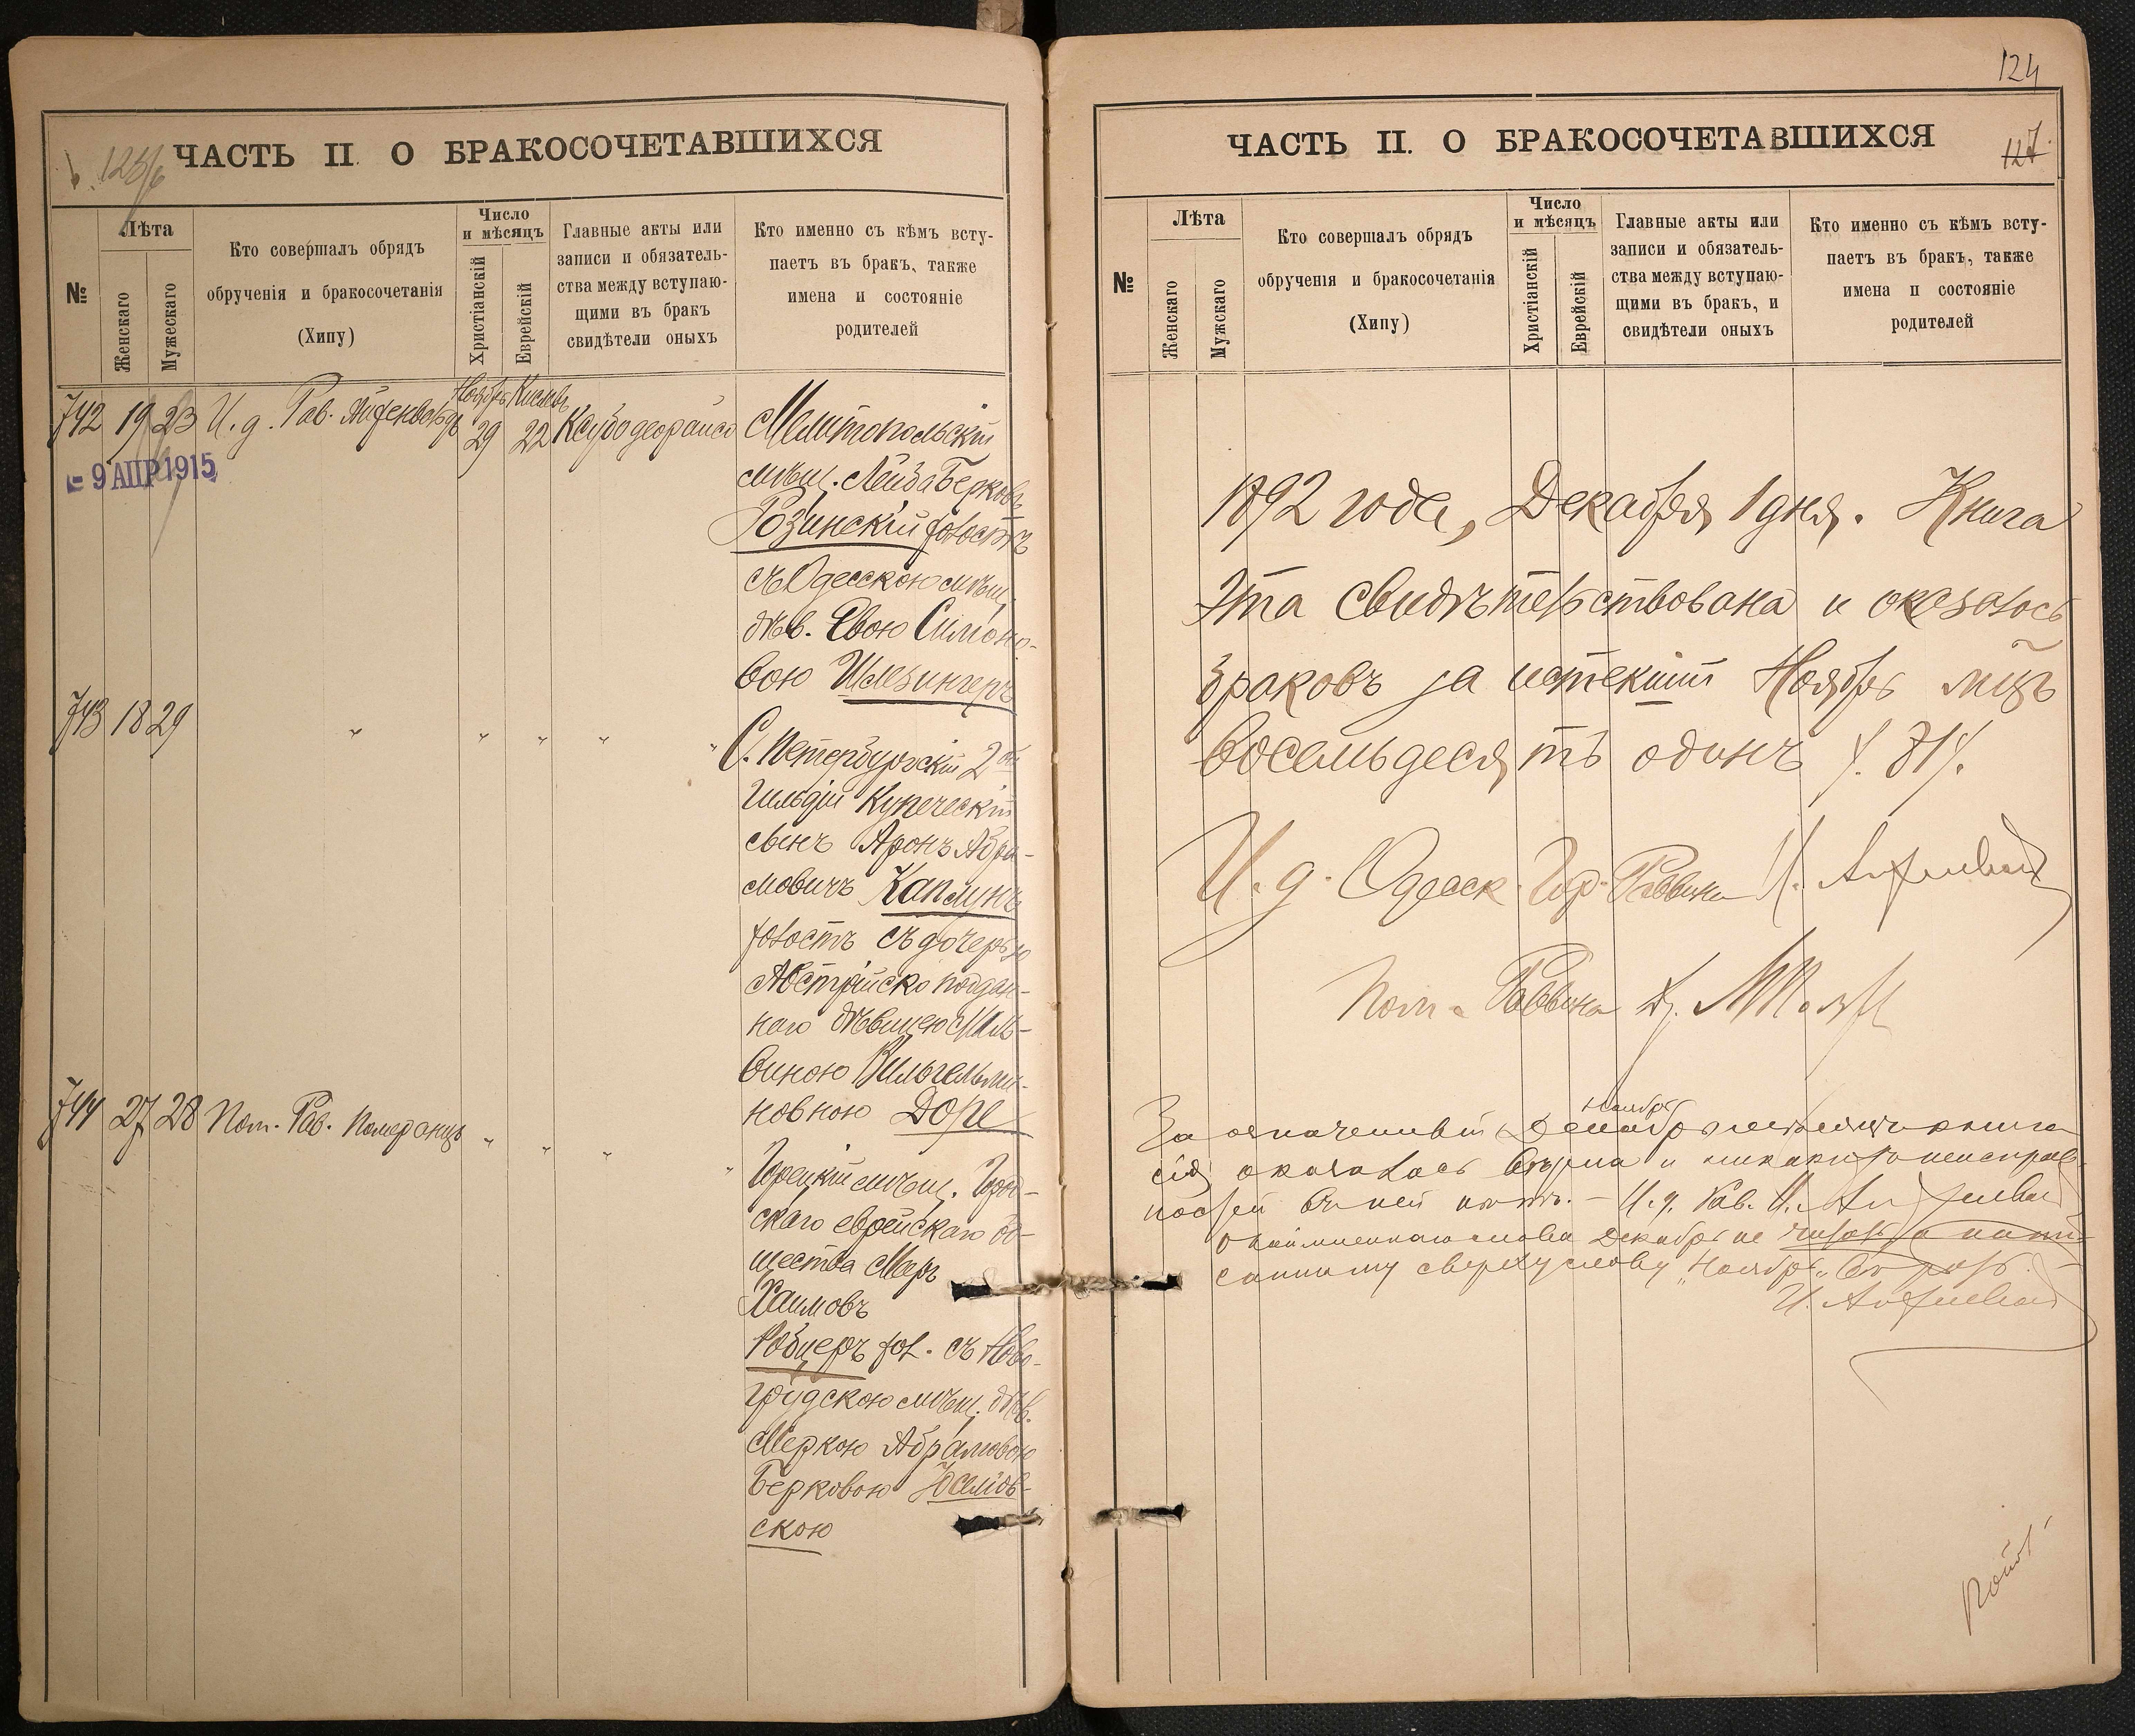 ЧАСТЬ II. О БРАКОСОЧЕТАВШИХСЯ
№
Лѣта
Женскаго
Мужескаго
Кто совершалъ обрядъ
обрученія и бракосочетанія
(Хипу)
Число
и мѣсяцъ
Христіанскій
Еврейскій
Главные акты или
записи и обязатель-
ства между вступаю-
щими въ бракъ
свидѣтели оныхъ
Кто именно съ кѣмъ всту-
паетъ въ бракъ, также
имена и состояніе
родителей
742 19 23 И. д. Рав. Ноябрь 29 Кислевъ 22
- 9 АПР 1915
Мелитопольскій
мѣщ. Лейба Берковъ
Розинскій холостъ
съ Одесскою мѣщ.
дѣв. Евою Симоно-
вою Шлезингеръ
743 18 29 " " " " "
С. Петербургскій 2ой
Гильдіи Купеческій
сынъ Аронъ Абра-
мовичъ Каплунъ
холостъ съ дочерью
Австрійско поддан-
наго дѣвицею Маль-
виною Вильгельми-
новною Доре
744 27 28 Пом. Рав. Померанцъ " " " "
Горецкій мѣщ. Город-
скаго еврейскаго об-
щества Меръ
Хаимовъ
Робнеръ хол. съ Ново-
грудскою мѣщ. дѣв.
Меркою Абрамовою
Берковою
скою
124
127
ЧАСТЬ II. О БРАКОСОЧЕТАВШИХСЯ
№
Лѣта
Женскаго
Мужскаго
Кто совершалъ обрядъ
обрученія и бракосочетанія
(Хипу)
Число
и мѣсяцъ
Христіанскій
Еврейскій
Главные акты или
записи и обязатель-
ства между вступаю-
щими въ бракъ, и
свидѣтели оныхъ
Кто именно съ кѣмъ всту-
паетъ въ бракъ, также
имена и состояніе
родителей
1892 года, Декабря 1 дня. Книга
эта свидѣтельствована и оказалось
браковъ за истекшій Ноябрь мцъ
восемьдесятъ одинъ /. 81/.
И. д. Одесск. Гор. Раввина
Пом. Раввина
Ноябрь
За означенный Декабрь книга
сія оказалась вѣрна и никакихъ неисправ-
ностей въ ней нѣтъ. — И. д. Рав.
слова Декабрь не читать, а напи-
санному сверху слову „Ноябрь„ вѣрить.